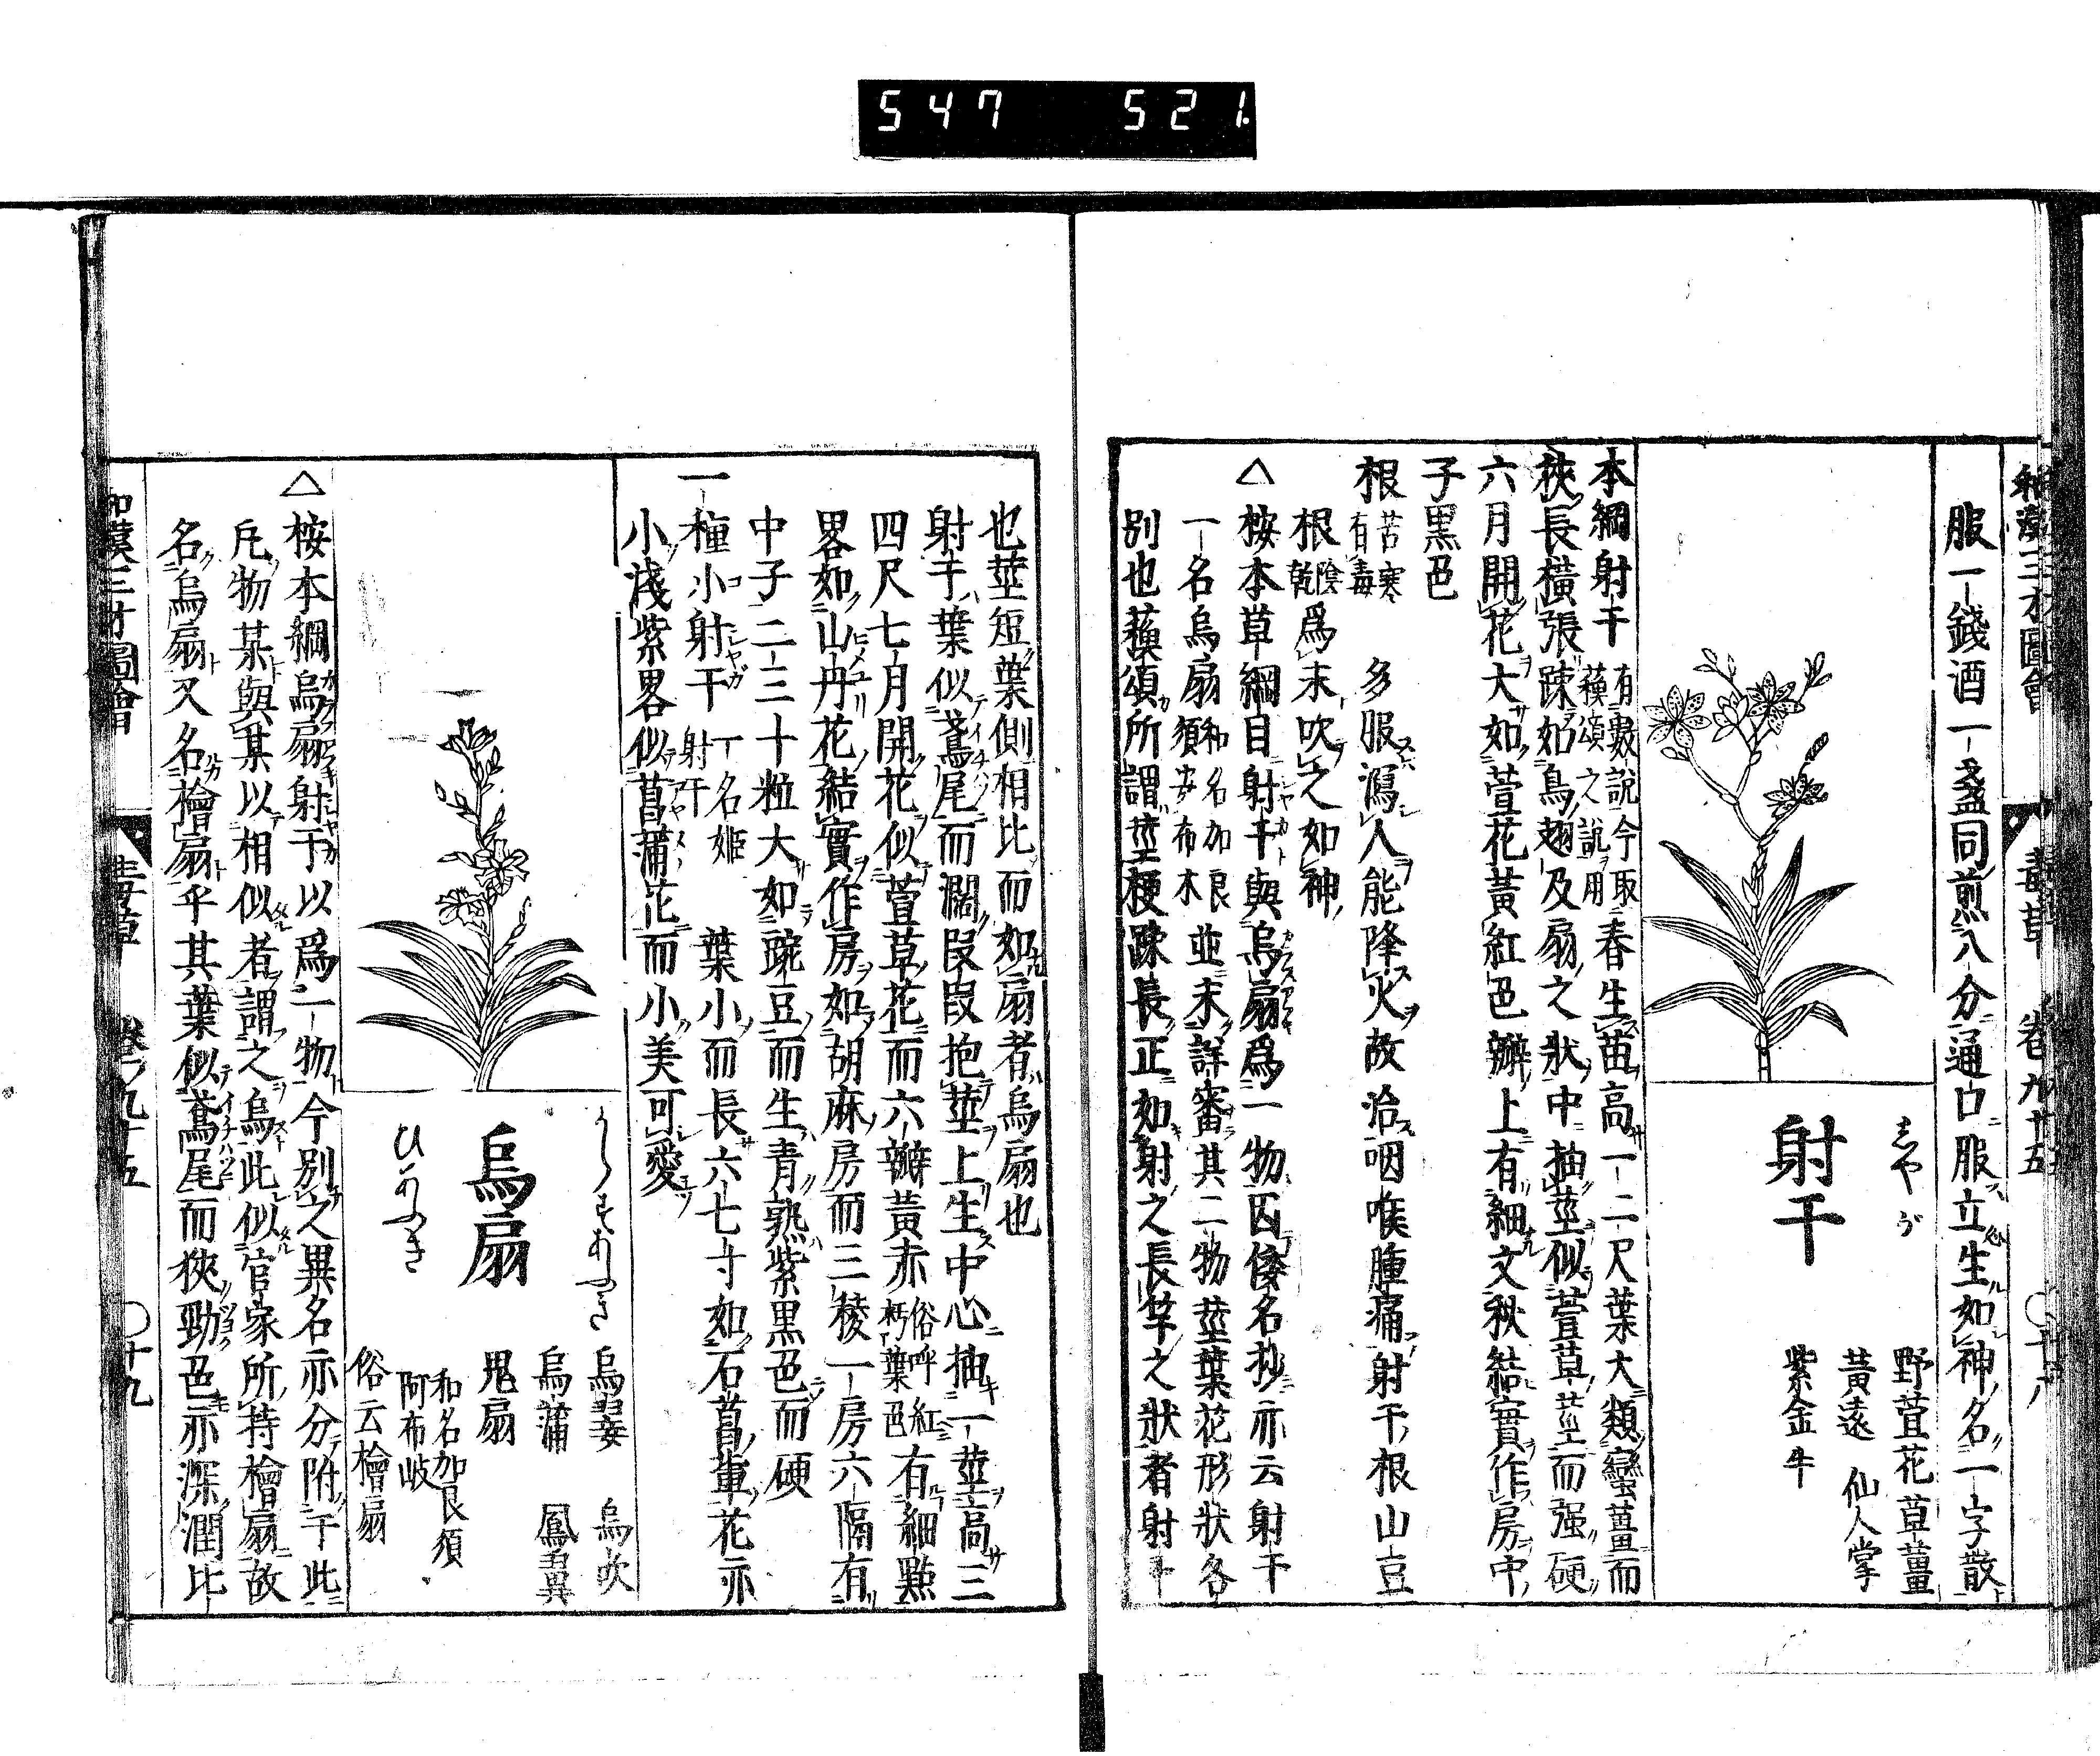 547 521
和漢三才圖會 毒草 卷九十五 ○十八
服一錢酒一盞同煎八分通口服立生如神名一字散
しやが
射干
野萱花 草薑
黃遠 仙人掌
紫金牛
本綱射干有數說今取蘓頌之說用春生苗高一二尺葉大類蠻薑而
狹長橫張疎如鳥翅及扇之狀中抽莖似萱草莖而强硬
六月開花大如萱花黃紅色瓣上有細文秋結實作房中
子黒色
根苦寒有毒 多服瀉人能降火故治咽喉腫痛射干根山豆
根陰乾爲末吹之如神
△按本草綱目射干與烏扇爲一物因倭名抄亦云射干
一名烏扇和名加良須安布木並未詳審其二物莖葉花形狀各
別也蘓頌所謂莖梗踈長正如射之長竿之狀者射干
也莖短葉側相比而如扇者烏扇也
射干葉似鳶尾而濶叚叚抱莖上生中心抽一莖高三
四尺七月開花似萱草花而六瓣黃赤俗呼紅朽葉色有細㸃
畧如山丹花結實作房如胡麻房而三稜一房六隔有
中子二三十粒大如豌豆而生青熟紫黒色而硬
一種小射干一名姫射干 葉小而長六七寸如石菖葷花亦
小淺紫畧似菖蒲花而小美可愛
からすあふき
烏扇
ひあふき
烏翣 烏吹
烏蒲 鳳翼
鬼扇
和名加良須
阿布岐
俗云檜扇
△按本綱烏扇射干以爲一物今別之異名亦分附于此
凡物某與某以相似者謂之烏此似官家所持檜扇故
名烏扇又名檜扇乎其葉似鳶尾而狹勁色亦深潤比
和漢三才圖會 毒草 卷ノ九十五 ○十九